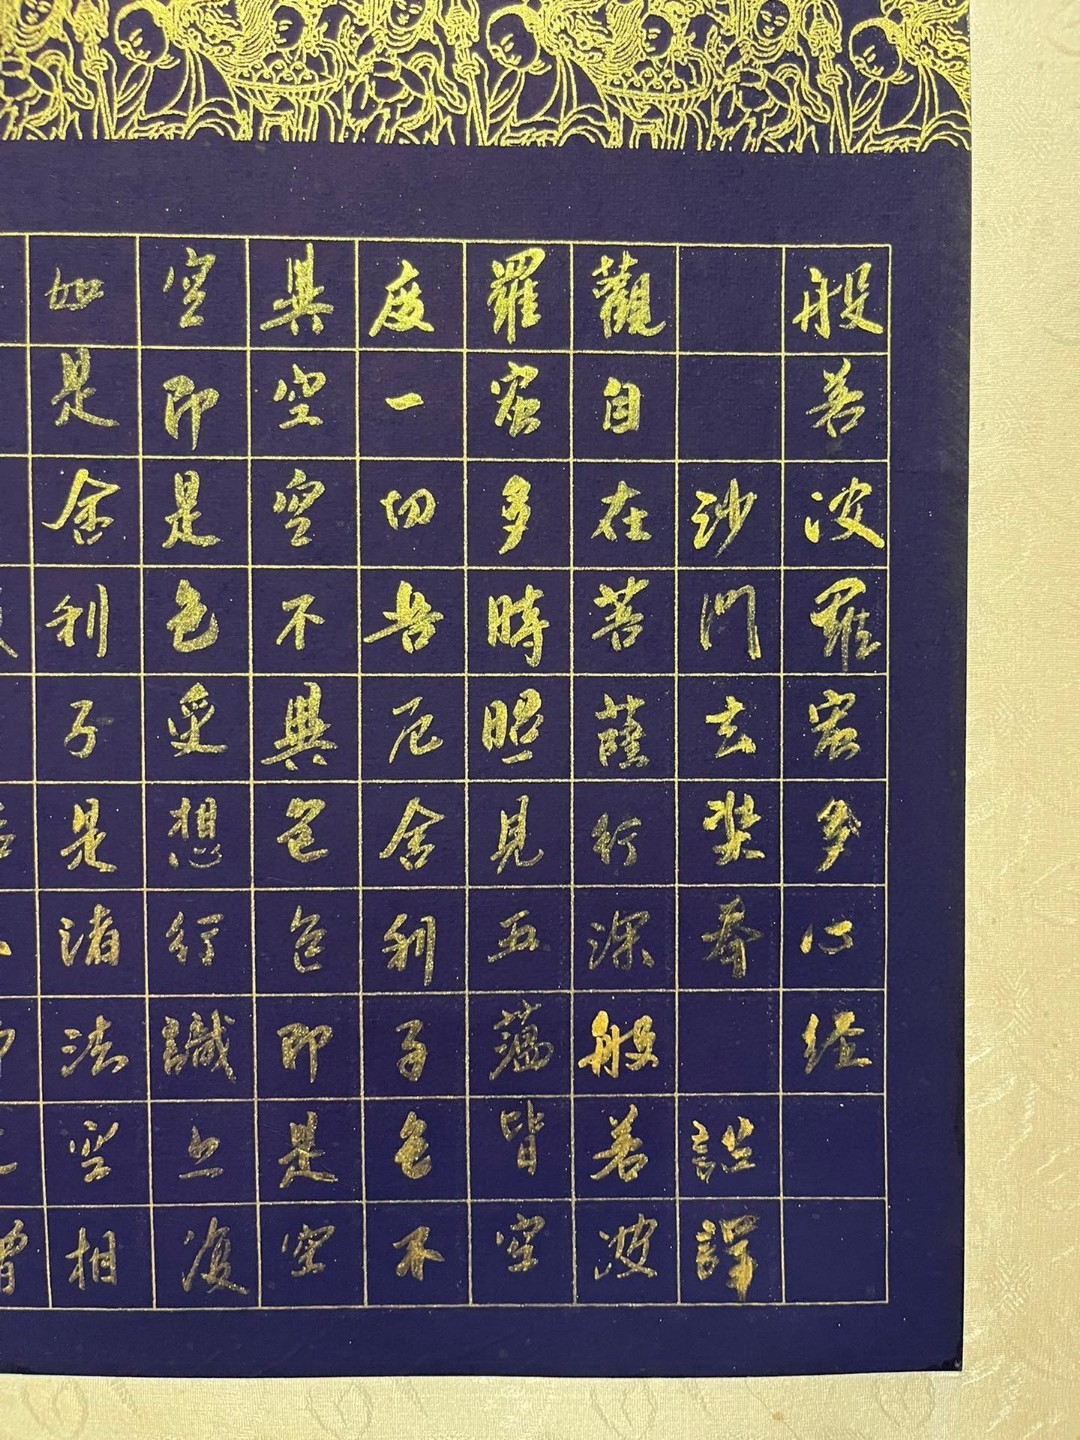 般若波羅蜜多心経
沙門玄奘奉 詔譯
觀自在菩薩行深般若波
羅蜜多時照見五蘊皆空
度一切苦厄舍利子色不
異空空不異色色即是空
空即是色受想行識亦復
如是舍利子是諸法空相